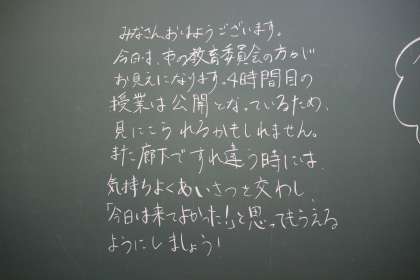 みなさんおはようございます。
今日は、市の教育委員会の方々が
お見えになります。4時間目の
授業は公開となっているため、
見にこられるかもしれません。
また廊下ですれ違う時には、
気持ちよくあいさつを交わし、
「今日は来てよかった!」と思ってもらえる
ようにしましょう!